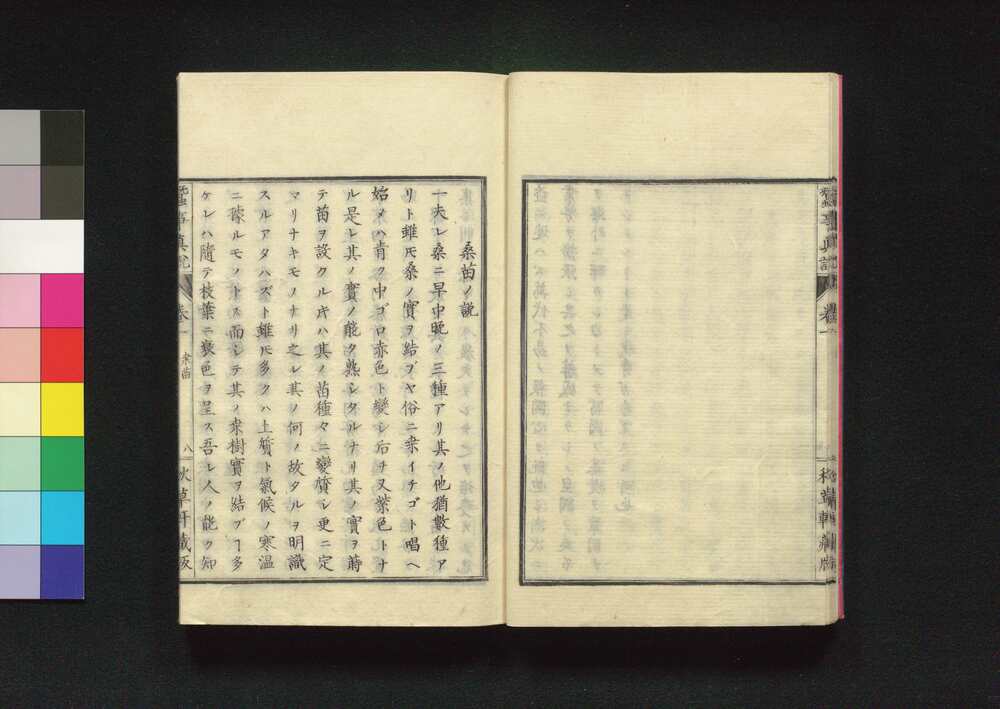 桑苗ノ説
一夫レ桑ニ早中晩ノ三種アリ其ノ他猶數種ア
リト雖𪜈桑ノ實ヲ結ブヤ俗ニ桒イチゴト唱ヘ
始メハ青ク中ゴロ赤色ト變シ后ヲ又紫色トナ
ル是レ其ノ實ノ能ク熟シタルナリ其ノ實ヲ蒔
テ苗ヲ設クル𪜈ハ其ノ苗種々ニ變質シ更ニ定
マリナキモノナリ之レ其ノ何ノ故タルヲ明識
スルアタハズト雖𪜈多クハ土質ト氣候ノ寒温
ニ據ルモノトス而シテ其ノ桒樹實ヲ結ブヿ多
ケレハ隨テ枝葉ニ衰色ヲ呈ス吾レ人ノ能ク知
蚕事眞説
卷一
桒苗
八